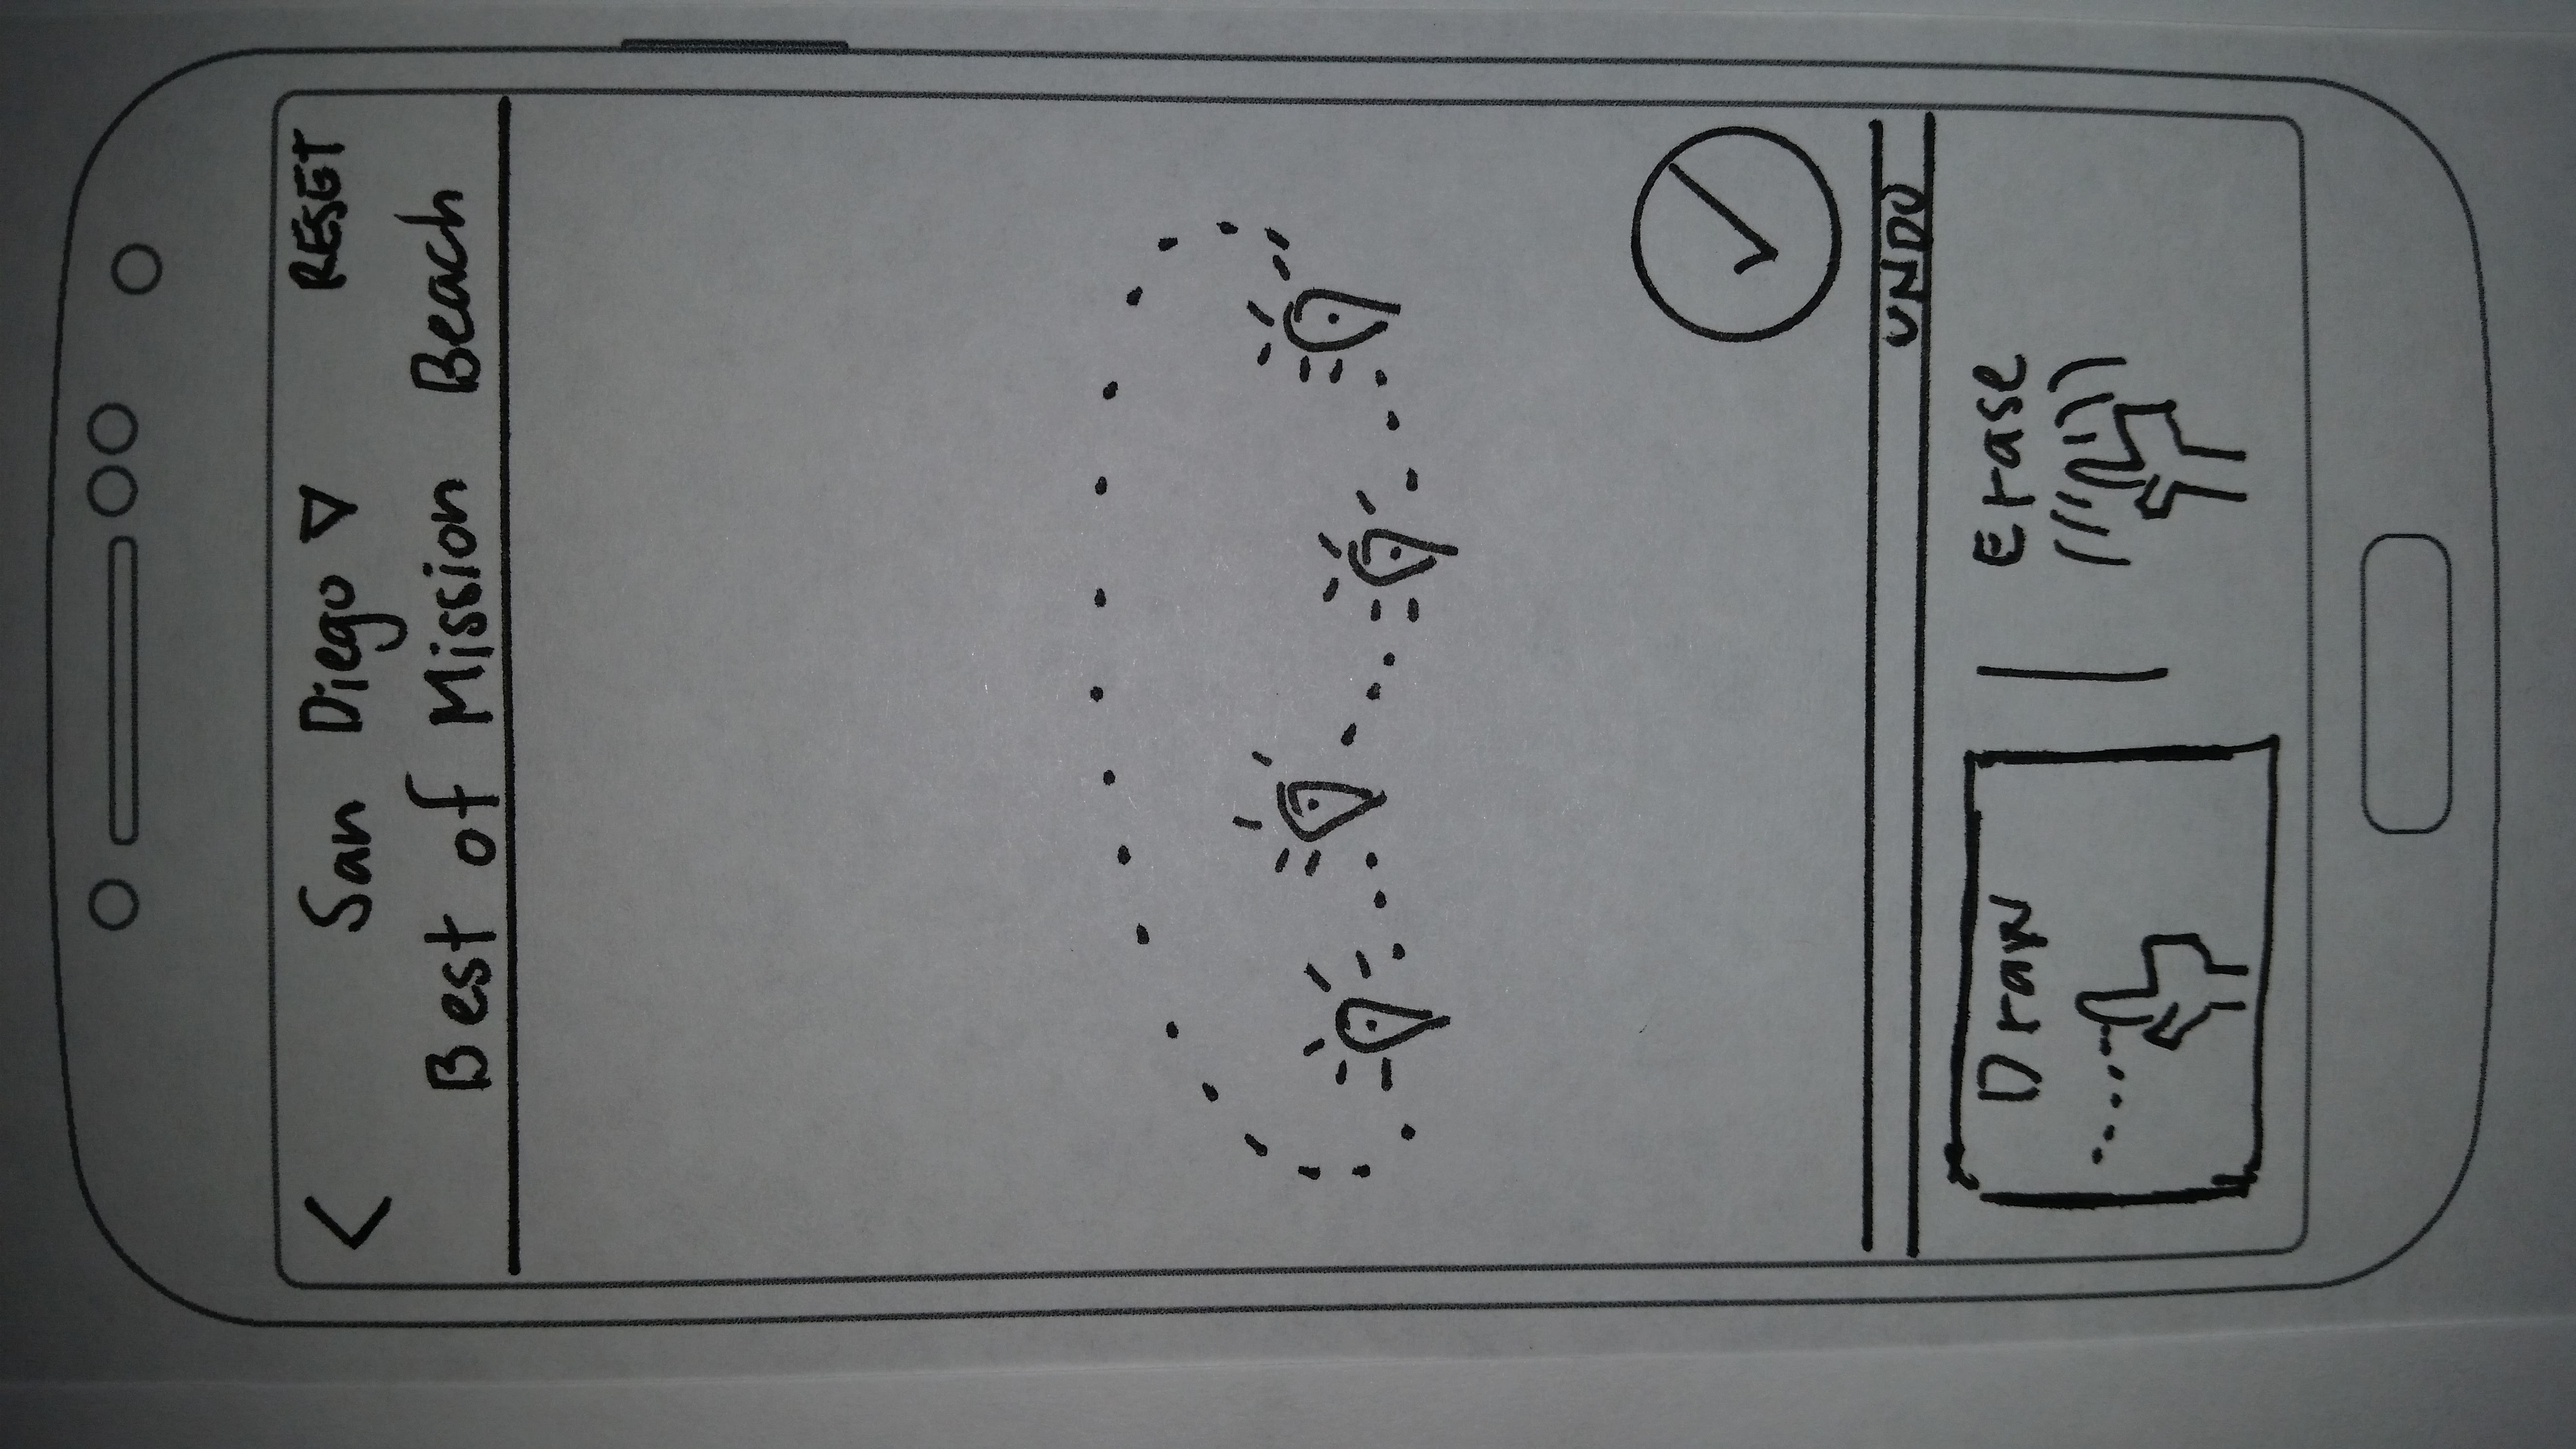 San Diego RESET
Best of Mission Beach
UNDO
Draw Erase